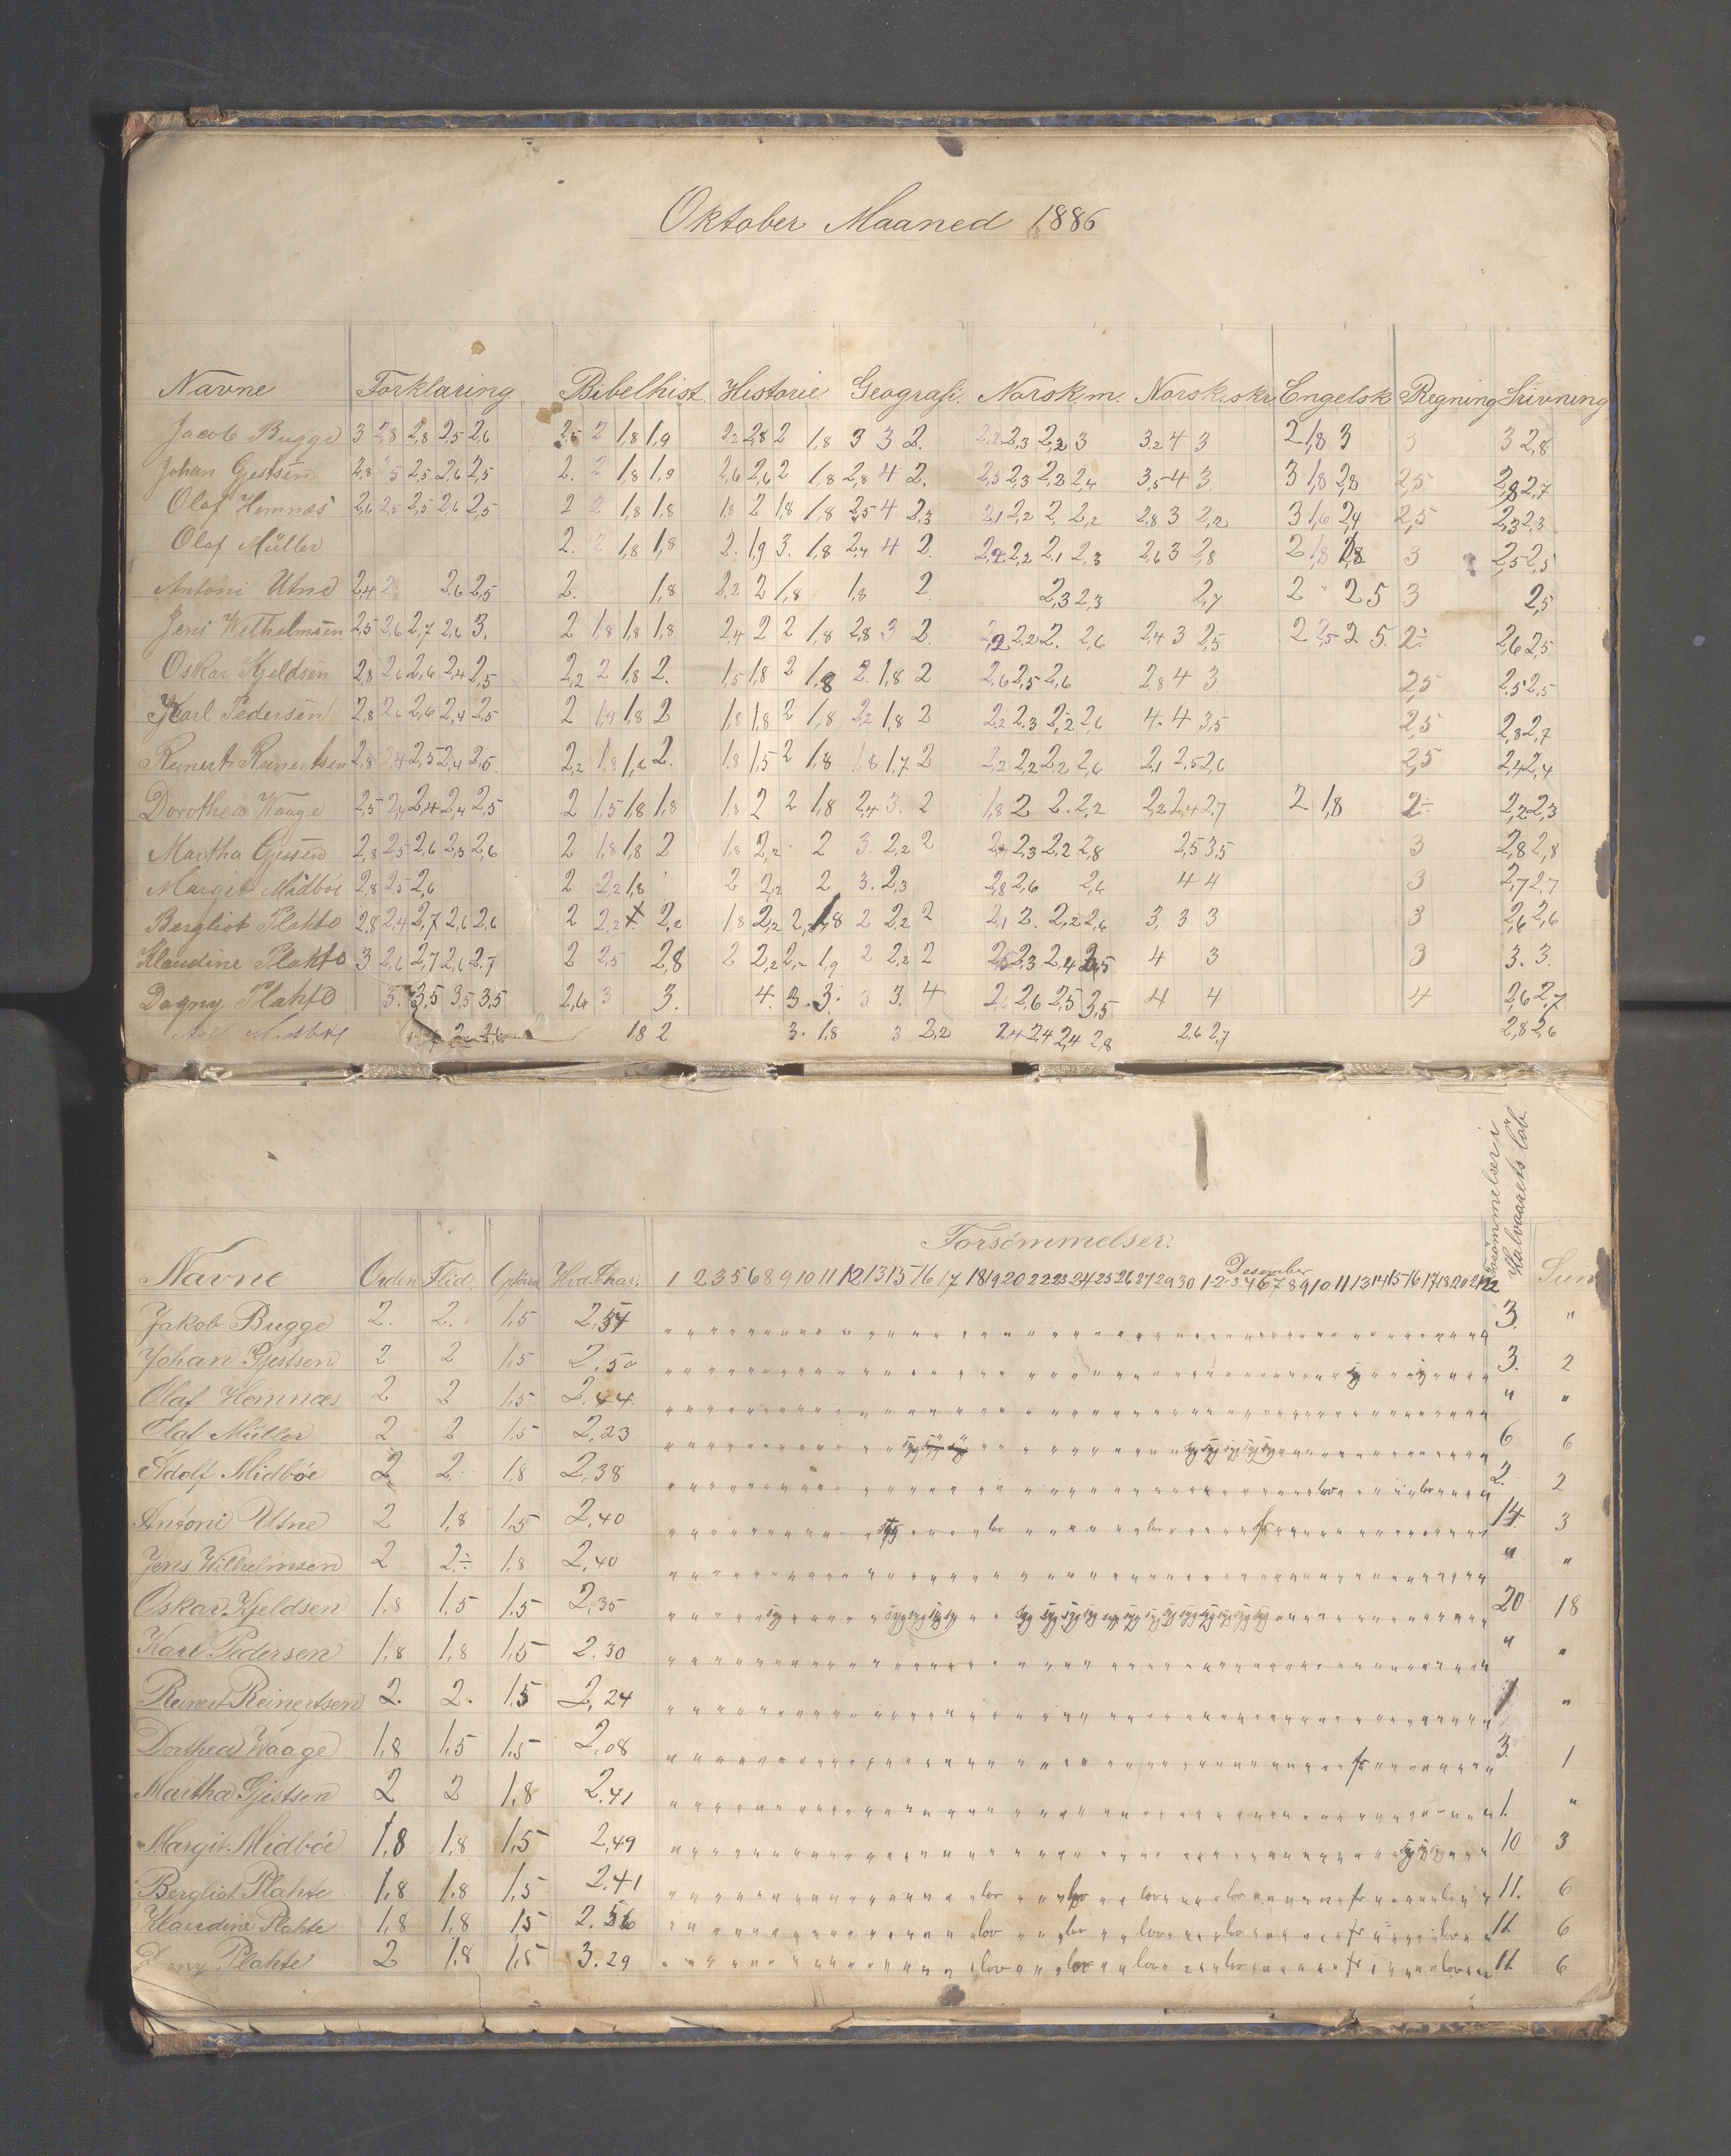 Oktober Maaned 1886
Navne Forklaring Bibelhist. Historie Geografi. Norsk m. Norsk skr. Engelsk Regning Skrivning
Jacob Bugge 3 2,8 2,8 2,5 2,6 2,5 2 1,8 1,9 2,2 2,8 2 1,8 3 3 2. 2,2 2,3 2,2 3 3,2 4 3 2 1,8 3 3 3 2,8
Johan Gjestsen 2,8 2,5 2,5 2,6 2,5 2. 2 1,8 1,9 2,6 2,6 2 1,8 2,8 4 2. 2,5 2,3 2,2 2,4 3,5 4 3 3 1,8 2,8 2,5 2,8 2,7
Olaf Hemnæs 2,6 2,5 2,5 2,6 2,5 2 2 1,8 1,8 1,8 2 1,8 1,8 2,5 4 2,3 2,1 2,2 2 2,2 2,8 3 2,2 3 1,6 2,4 2,5 2,3 2,3
Olaf Müller 2. 2 1,8 1,8 2. 1,9 3. 1,8 2,4 4 2. 2,2 2,2 2,1 2,3 2,6 3 2,8 2 1,8 2,8 3 2,5 2,5
Antoni Utne 2,4 2 2,6 2,5 2. 1,8 2,2 2 1,8 1,8 2. 2,3 2,3 2,7 2 2 5 3 2,5
Jens Wilhelmsen 2,5 2,6 2,7 2,6 3. 2 1,8 1,8 1,8 2,4 2 2 1,8 2,8 3 2. 2,2 2,2 2. 2,6 2,4 3 2,5 2 2,5 2 5. 2÷ 2,6 2,5
Oskar Kjeldsen 2,8 2,6 2,6 2,4 2,5 2,2 2 1,8 2. 1,5 1,8 2 1,8 2. 1,8 2 2,6 2,5 2,6 2,8 4 3 2,5 2,5 2,5
Karl Pedersen 2,8 2,6 2,6 2,4 2,5 2 1,9 1,8 2 1,8 1,8 2 1,8 2,2 1,8 2 2,2 2,3 2,2 2,6 4. 4 3,5 2,5 2,8 2,7
Reinert Reinertsen 2,8 2,4 2,5 2,4 2,5. 2,2 1,8 1,6 2. 1,8 1,5 2 1,8 1,8 1,7 2 2,2 2,2 2,2 2,6 2,1 2,5 2,6 2,5 2,4 2,4
Dorothea Waage 2,5 2,4 2,4 2,4 2,5 2 1,5 1,8 1,8 1,8 2 2 1,8 2,4 3. 2 1,8 2 2. 2,2 2,2 2,4 2,7 2 1,8 2÷ 2,2 2,3
Martha Gjestsen 2,8 2,5 2,6 2,5 2,6 2 1,8 1,8 2 1,8 2,2 2 3. 2,2 2 2,4 2,3 2,2 2,8 2,5 3,5 3 2,8 2,8
Margit Midböe 2,8 2,5 2,6 2 2,2 1,8 2 2,2 2 3. 2,3 2,8 2,6 2,6 4 4 3 2,7 2,7
Bergliot Plahte 2,8 2,4 2,7 2,6 2,6 2 2,2 2,2 1,8 2,2 2,2 1,8 2 2,2 2 2,1 2. 2,2 2,6 3. 3 3 3 2,6 2,6
Klaudine Plahte 3 2,6 2,7 2,6 2,7 2 2,5 2,8 2 2,2 2,2 1,9 2 2,2 2 2,5 2,3 2,4 2,5 4 3 3 3. 3.
Dagny Plahte 3. 3,5 3,5 3,5 2,6 3 3. 4. 3. 3. 3 3. 4 2,6 2,5 3,5 4 4 4 2,6 2,7
1,8 2 3. 1,8 3 2,2 2,4 2,4 2,4 2,8 2,6 2,7 2,8 2,6
Forsømmelser i
Halvaarets løb
Forsömmelser.
Desember
Navne Orden Flid. Opførsel Hvd.Char. 1 2 3 5 6 8 9 10 11 12 13 15 16 17 18 19 20 22 23 24 25 26 27 29 30 1 2 3 4 6 7 8 9 10 11 13 14 15 16 17 18 20 21 22 Sum
Jakob Bugge 2. 2. 1,5 2,54 3. "
Johan Gjestsen 2 2 1,5 2.50 syg syg 3. 2
Olaf Hemnæs 2 2 1,5 2.44 " "
Olaf Müller 2 2 1,5 2,23 syg syg syg syg syg syg syg syg 6 6
Adolf Midböe 2 2 1,8 2,38 lov lov 2. 2
Antoni Utne 2 1,8 1,5 2,40 syg lov lov fr 14 3
Jens Wilhelmsen 2 2÷ 1,8 2,40 " "
Oskar Kjeldsen 1,8 1,5 1,5 2,35 syg syg syg syg syg syg syg syg syg syg syg syg syg syg syg syg syg syg 20 18
Karl Pedersen 1,8 1,8 1,5 2.30 " "
Reinert Reinertsen 2. 2. 1,5 2,24 1 "
Dorthea Waage 1,8 1,5 1,5 2,08 fr 3. 1
Martha Gjestsen 2 2 1,8 2.41 1. "
Margit Midböe 1,8 1,8 1,5 2,49 syg syg syg 10 3
Bergliot Plahte 1,8 1,8 1,5 2.41 lov lov lov lov fr lov 11. 6
Klaudine Plahte 1,8 1,8 1,5 2.56 lov lov lov lov fr lov 11. 6
Plahte 2 1,8 1,5 3.29 lov lov lov lov fr lov 11. 6